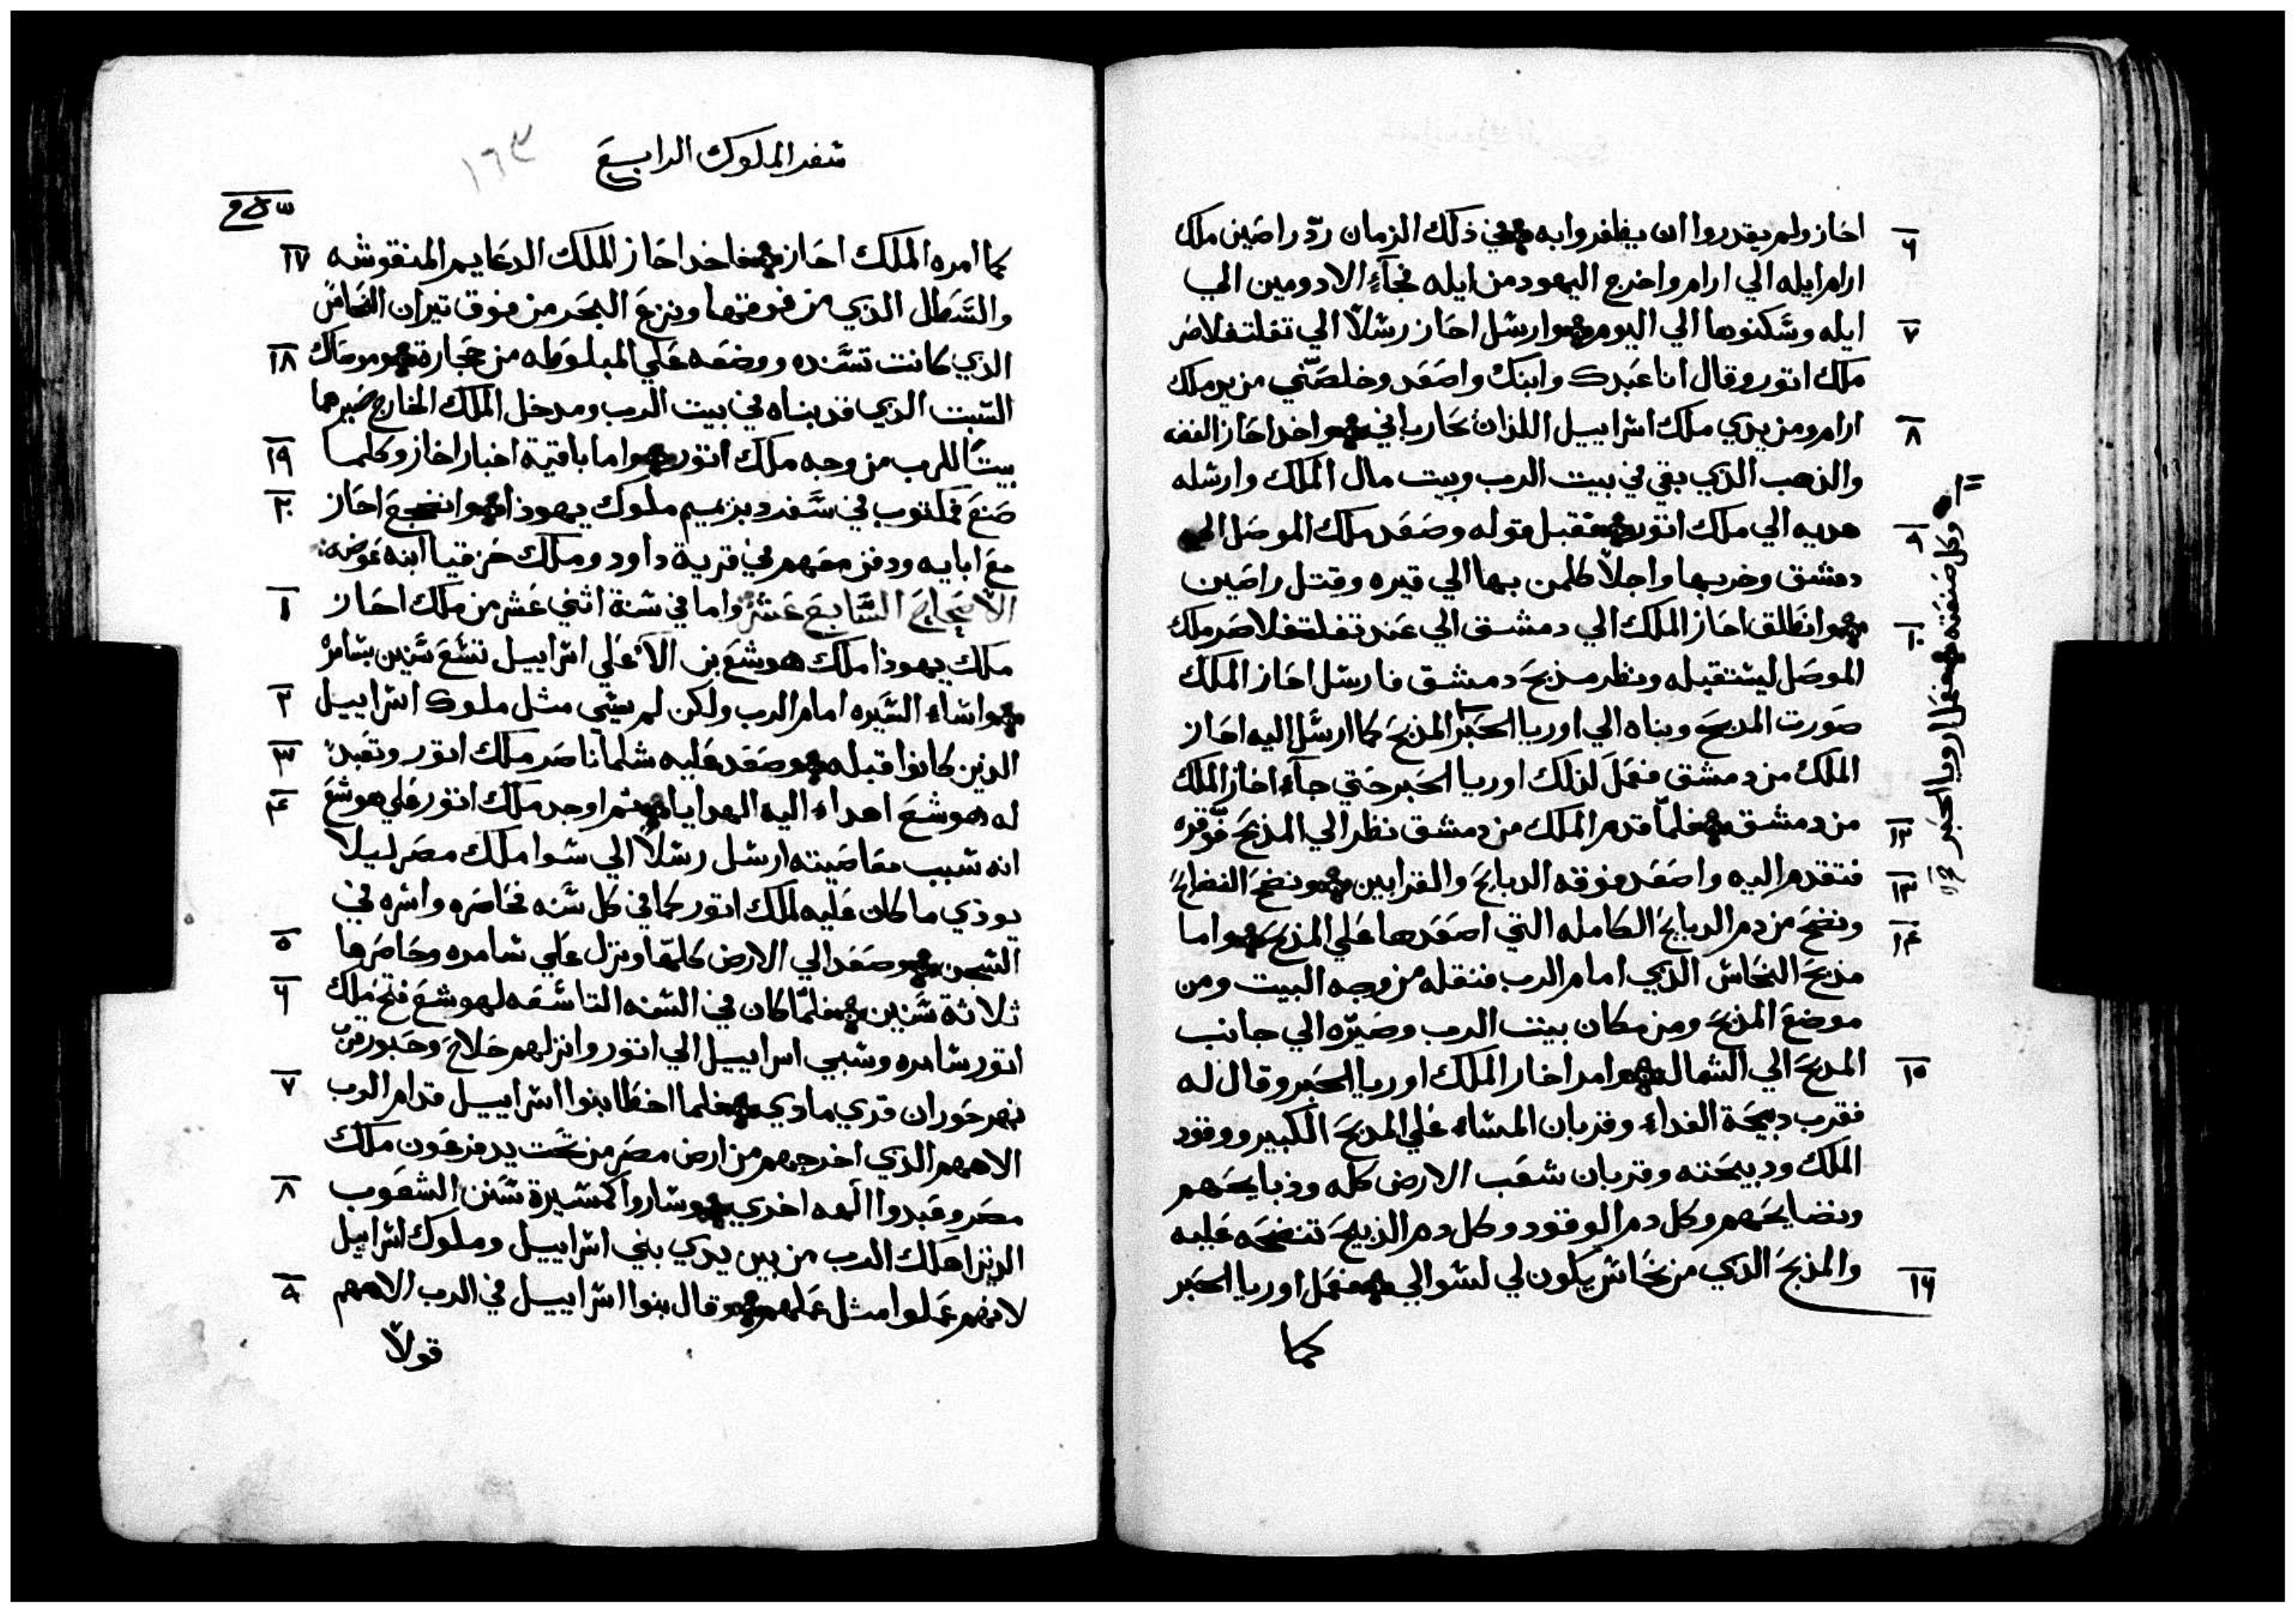 احاز ولم يقدروا ان يظفروا به وفي ذلك الزمان ردّ راصين ملك
ارام ايله الي ارام واخرج اليهود من ايله فجآء الادومين الي
ايله وسكنوها الي اليوم وارسل احاز رسلاً الي تغلتفلاصر
ملك اتور وقال انا عبدك وابنك واصعد وخلصني من يد ملك
ارام ومن يدي ملك اسراييل اللذان تحاربا في واخد احاز الفضه
والذهب الذي بقي في بيت الرب وبيت مال الملك وارسله
هديه الي ملك اتور فقبل قوله وصعد ملك الموصل الي
دمشق وخربها واجلا كلمن بها الي قيره وقتل راصين
وانطلق احاز الملك الي دمشق الي عند تغلتفلاصر ملك
الموصل ليستقبله ونظر مذبح دمشق فارسل احاز الملك
صورت المدبح وبناه الي اوريا الحبر المذبح كما ارسل اليه احاز
الملك من دمشق فعمل لذلك اوريا الحبر حتي جآء احاز الملك
من دمشق فلمّا قدم الملك من دمشق نظر الي المذبح فوّقره
فتقدم اليه واصعد فوقه الدبايح والقرابين ونضح النضايح
ونضح من دم الدبايح الكامله التي اصعدها علي المذبح واما
مذبح النحاس الذي امام الرب فنقله من وجه البيت ومن
موضع المذبح ومن مكان بيت الرب وصيّره الي جانب
المدبح الي الشمال وامر احاز الملك اوريا الحبر وقال له
فقرب دبيحة الغداء وقربان المساء علي المدبح الكبير ووقود
الملك ودبيحته وقربان شعب الارض كله وذبايحهم
ونضايحهم وكل دم الوقود وكل دم الذبيح تنضحه عليه
والمذبح الذي من نحاس يكون لي لسوالي فعمل اوريا الحبر
كما
٦
٧
٨
٩
١٠
١٢
١٣
١٤
١٥
١٦
وكل صنعته فعمل اوريا الحبر
سفر الملوك الرابع
١٦٣
كما امره الملك احاز فاخد احاز الملك الدعايم المنقوشه
والسطال الذي من فوقها ونزع البحر من فوق تيران النحاس
الذي كانت تسنده ووضعه علي المبلوطه من حجارة وموضاك
السبت الذي قد بناه في بيت الرب ومدخل الملك الخارج صيرهما
بيتًا للرب من وجه ملك اتور واما باقية اخبار احاز وكلما
صنع فمكتوب في سفر دبريميم ملوك يهوذا وانضجع احاز
مع ابايه ودفن معهم في قرية داود وملك حزقيا ابنه عوضه
الاصحاح السابع عشر واما في سنة اثني عشر من ملك احاز
ملك يهوذا ملك هوشع بن الا علي اسراييل تسع سنين بشامره
واساء السيره امام الرب ولكن لم يسي مثل ملوك اسراييل
الدين كانوا قبله وصعد عليه شلماناصر ملك اتور وتعبد
له هوشع اهداء اليه الهدايا ثم اوجد ملك اتور علي هوشع
انه سبب معاصيته ارسل رسلاً الي سوا ملك مصر ليلا
يودي ما كان عليه لملك اتور كما في كل سنه فحاصره واسره في
السجن وصعد الي الارض كلها ونزل علي شامره وحاصرها
ثلاثة سنين فلمّا كان في السنه التاسعه لهوشع فتح ملك
اتور شامره وسبي اسراييل الي اتور وانزلهم حلاح وحبور من
نهر حوران قري مادي فلما اخطا بنوا اسراييل قدام الرب
الاههم الذي اخرجهم من ارض مصر من تحت يد فرعون ملك
مصر وعبدوا الهه اخري وساروا كسيرة سنن الشعوب
الدين اهلك الرب من بين يدي بني اسراييل وملوك اسراييل
لانهم عملوا مثل عملهم وقال بنوا اسراييل في الرب الاههم
قولاً
١٧
١٨
١٩
٢٠
١
٢
٣
٤
٥
٦
٧
٨
٩